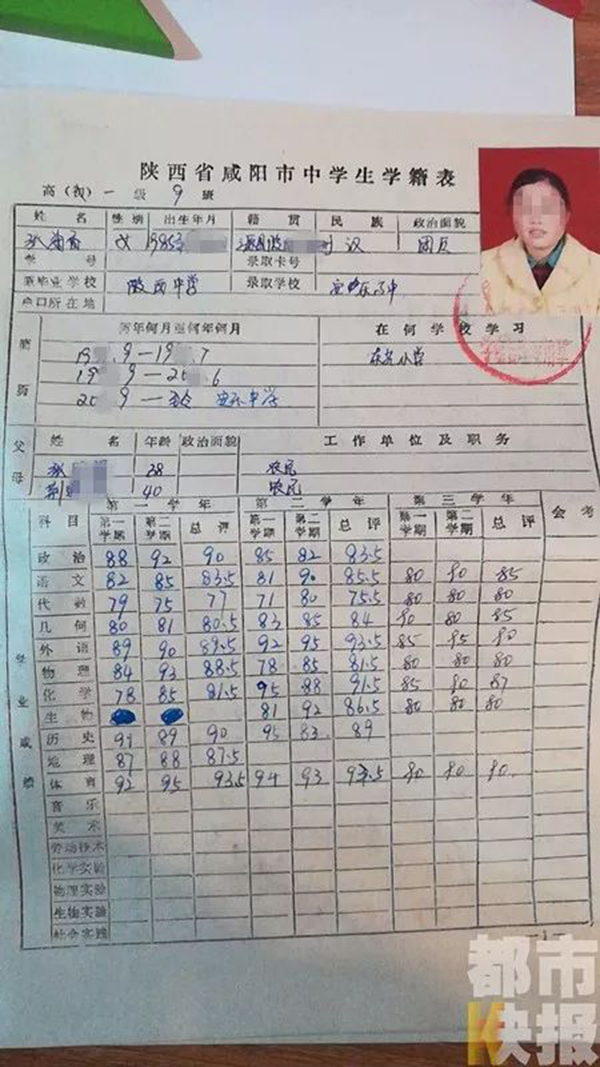 陕西省咸阳市中学生学籍表
高(初)一级9班
姓名 性别 出生年月 籍贯 民族 政治面貌
女 1985 汉 团员
学号 录取卡号
原毕业学校 陵西中学 录取学校
户口所在地
简历 何年何月至何年何月 在何学校学习
19 .9—19 .7
19 9—20 .6
20 9— 中学
父母 姓名 年龄 政治面貌 工作单位及职务
38 农民
40 农民
学业成绩 科目 第一学年 第二学年 第三学年 会考
第一学期 第二学期 总评 第一学期 第二学期 总评 第一学期 第二学期 总评
政治 88 92 90 85 82 83.5
语文 82 85 83.5 81 90 85.5 80 90 85
代数 79 75 77 71 80 75.5 80 80 80
几何 80 81 80.5 83 85 84 90 80 85
外语 89 90 89.5 92 95 93.5 85 95 90
物理 84 93 88.5 78 85 81.5 80 80 80
化学 78 85 81.5 95 88 91.5 85 90 87
生物 81 92 86.5 80 80 80
历史 91 89 90 95 83 89
地理 87 88 87.5
体育 92 95 93.5 94 93 93.5 90 90 90
音乐
美术
劳动技术
化学实验
物理实验
生物实验
社会实践
—1—
都市快报